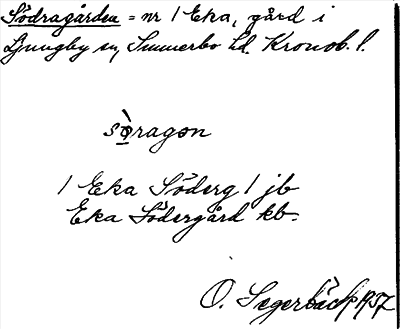 Södragården = nr 1 Eka, gård i
Ljungby sn, Sunnerbo hd. Kronob. l.
sǫ̀ragøn
1 Eka Söderg 1 jb
Eka Södergård kb.
O. Segerbäck 1937